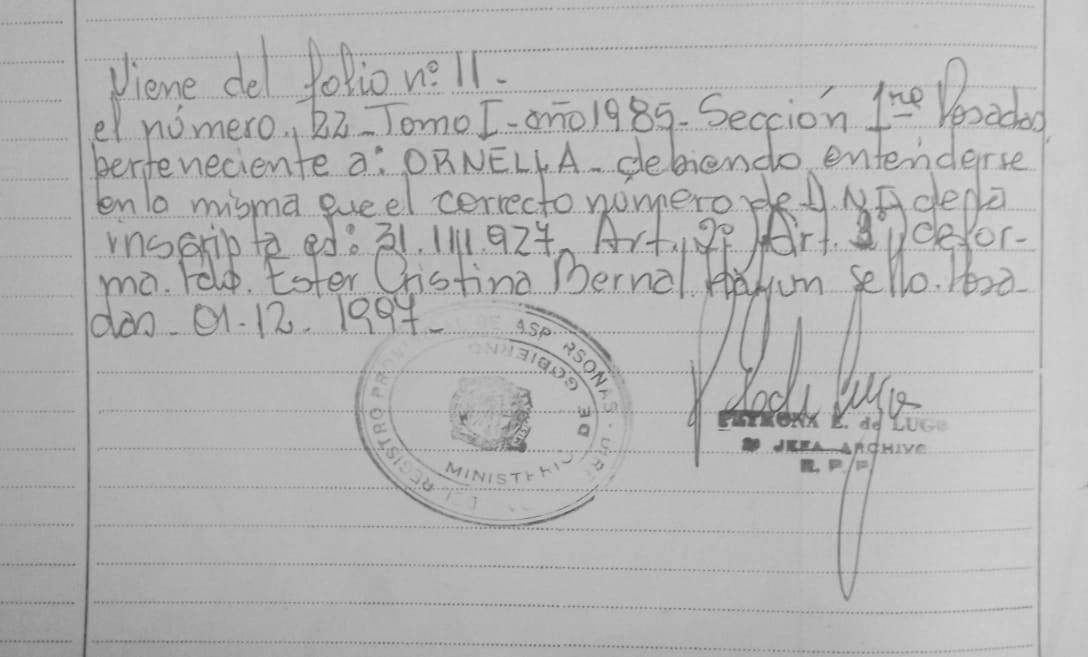 Viene del folio nº 11.-
el número, 22-Tomo I-año 1985-Sección 1ra Posadas
perteneciente a: ORNELLA-debiendo entenderse
en la misma que el correcto número de D.N.I de la
inscripta es: 31.111.927. Art. 9º Art. 3, de for-
ma. Fdo. Ester Cristina Bernal Hay un sello. Posa-
das-01-12-1997-
REGISTRO PRO DE ASP RSONAS
GOBIERNO DE
MINISTERI
E. de LUGO
JEFA ARCHIVO
R. P. P